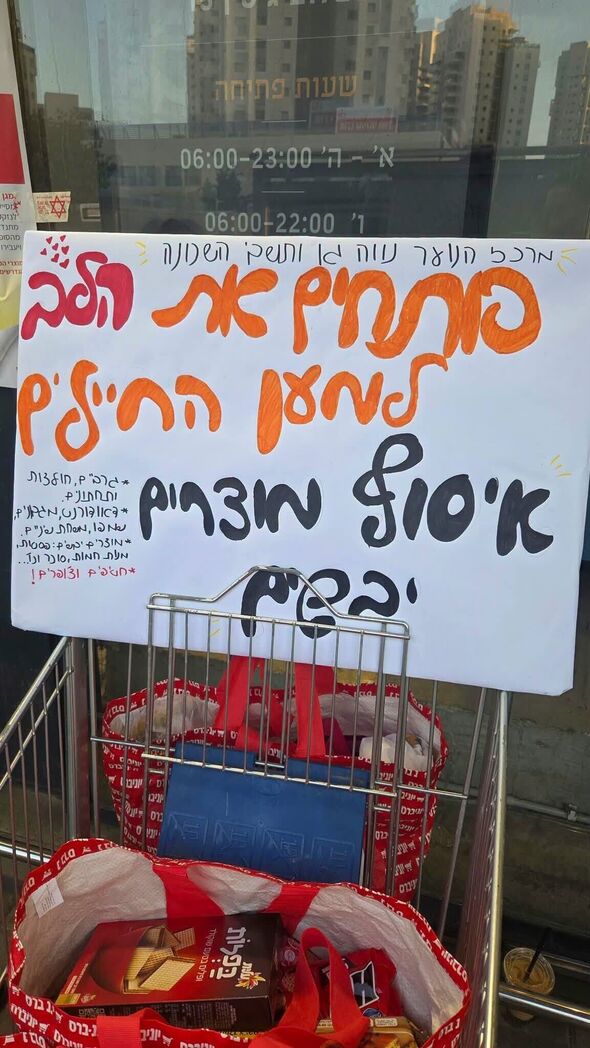 שעות פתיחה
א׳ - ה׳ 06:00-23:00
ו׳ 06:00-22:00
מרכז הנוער נווה גן ותושבי השכונה
פותחים את הלב
למען החיילים
איסוף מוצרים
יבשים
*גרביים, חולצות
ותחתונים.
*דאודורנט, מגבונים,
שמפו, משחת שיניים.
*מוצרים יבשים: פסטות,
מנות חמות, סוכר וכו'..
*חטיפים וצ'ופרים!
בפלות
יוניברס